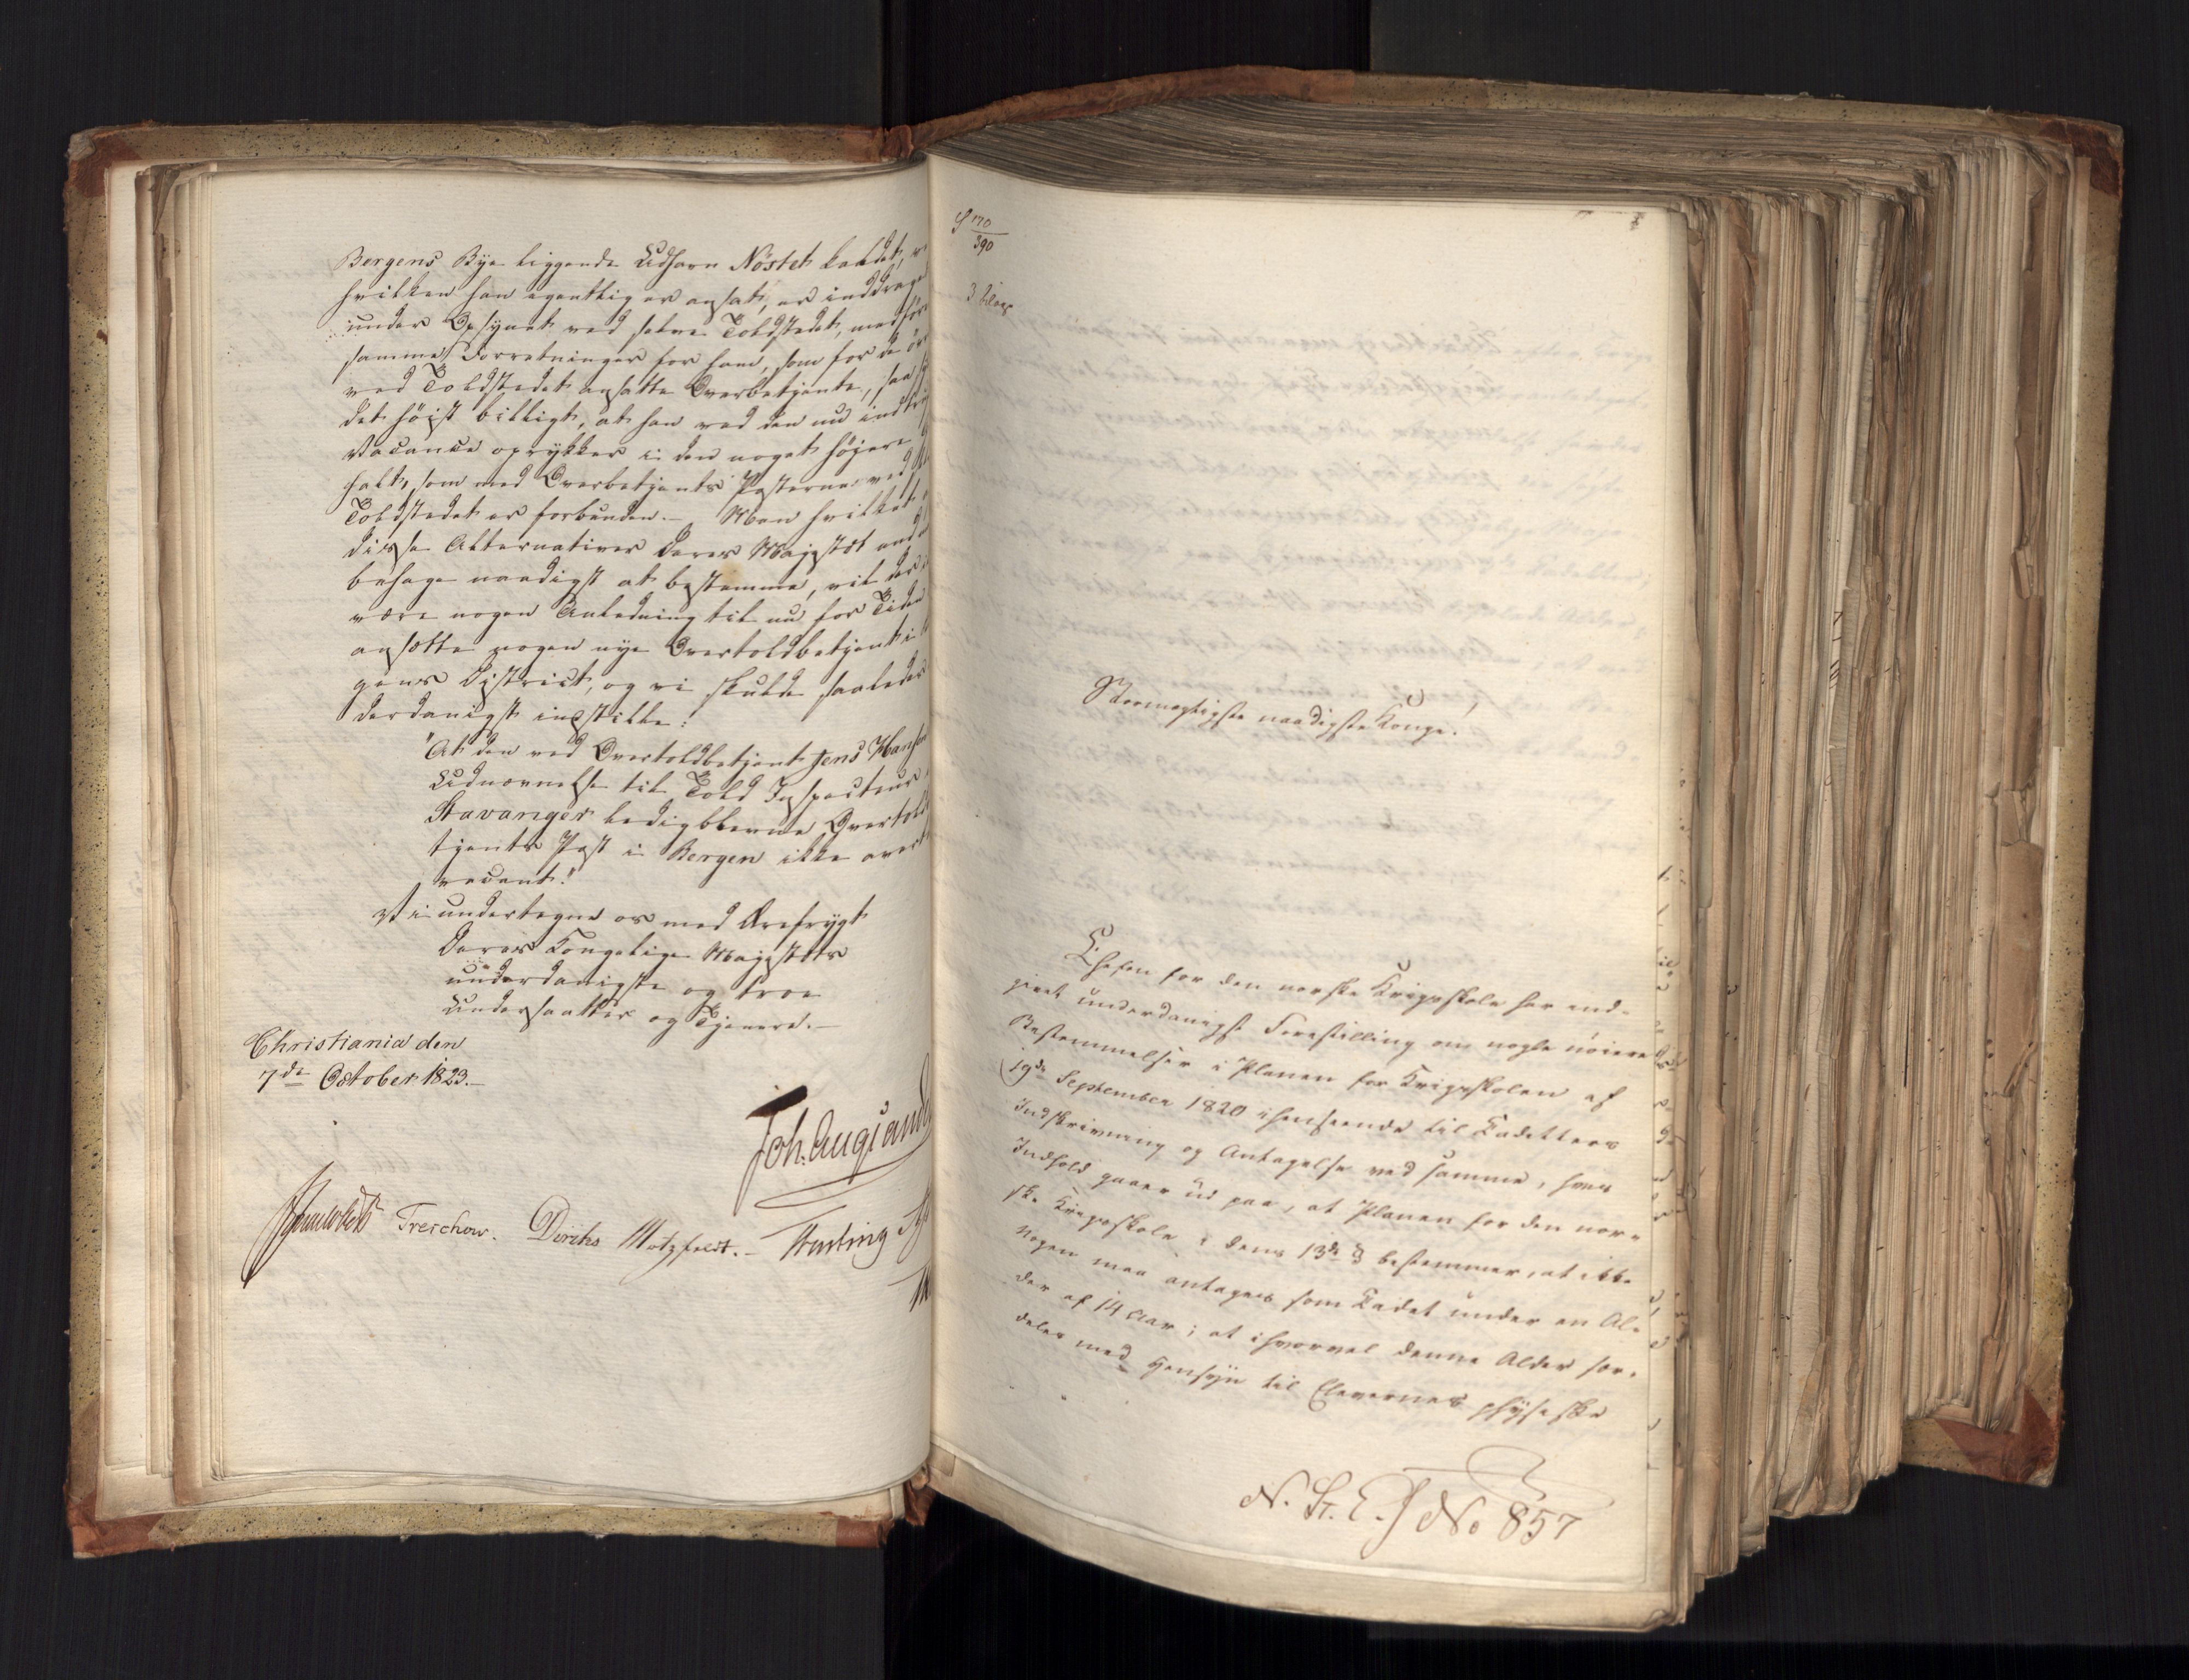 Bergens Bye liggende Udhavn Nöstet kaldet,
hvilken han egentlig er ansat, er inddrage
under Opsynet ved selve Toldstedet, medför
samme Forretninger for ham, som for de öv
ved Toldstedet ansatte Overbetjente, saa
det höist billigt, at han ved den nu indtr
Vacance oprykker i den noget höiere
halt, som med Overbetjents Posterne ved
Toldstedet er forbunden. – Men hvilket
disse Alternativer Deres Majestæt end
behage naadigst at bestemme, vil der
være nogen Anledning til nu for Tiden
ansætte nogen nye Overtoldbetjent i
gens District, og vi skulde saaledes
derdanigst indstille:
"At den ved Overtoldbetjent Jens Hansen
Udnævnelse til Told Inspecteur
Stavanger ledigblevne Overtold
tjents Post i Bergen ikke
vacant."
Vi undertegne os med Ærefrygt
Deres Kongelige Majestæts
underdanigste og troe
Undersaatter og Tjenere. –
Christiania den
7de October 1823. –
Joh. Aug. Sand
Sommerhielm Treschow. Diriks Motzfeldt. –
S 170
390
3 bilage
Stormægtigste naadigste Konge!
Chefen for den norske Krigsskole har ind-
givet underdanigst Forestilling om nogle nöiere
Bestemmelser i Planen for Krigsskolen af
19de September 1820 ihenseende til Cadetters
Indskrivning og Antagelse ved samme, hvis
Indhold gaaer ud paa, at Planen for den nor-
ske Krigsskole i dens 13de § bestemmer, at ikke
Nogen maa antages som Cadet under en Al-
der af 14 Aar; at ihvorvel denne Alder for-
deles med Hensyn til Elevernes physiske
N. St. E. J No 857